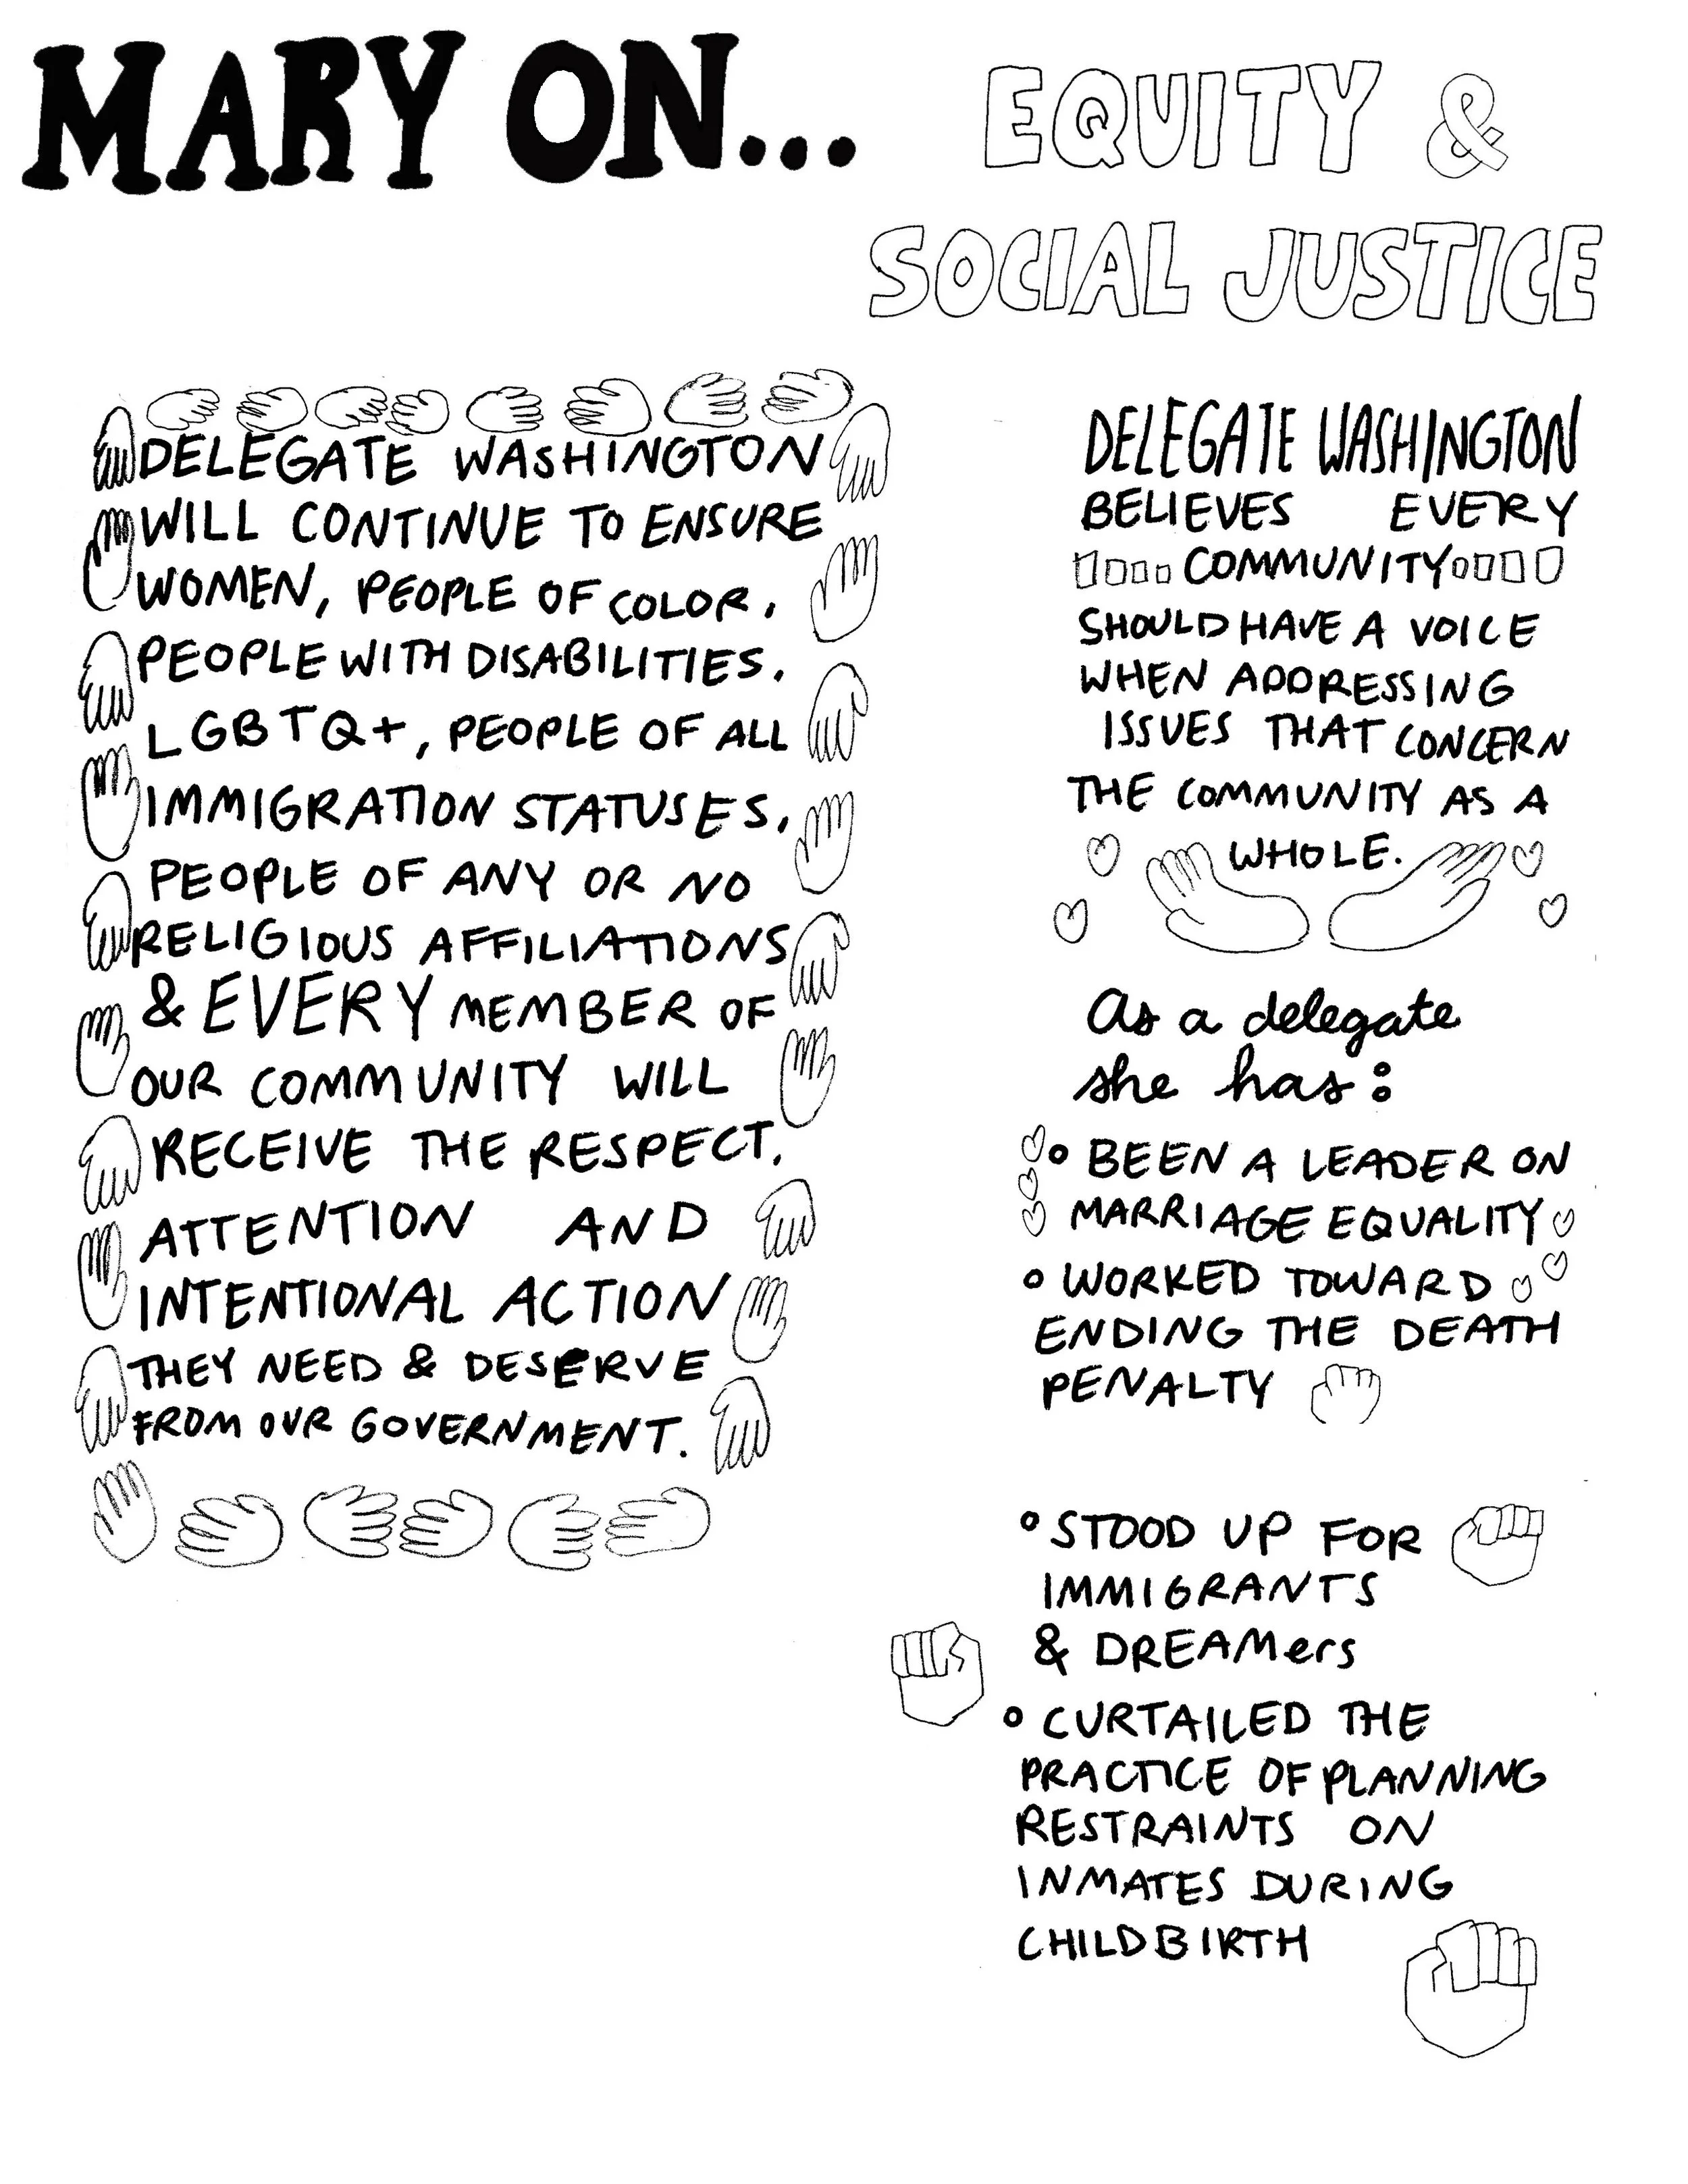 MARY ON...
EQUITY &
SOCIAL JUSTICE
DELEGATE WASHINGTON
WILL CONTINUE TO ENSURE
WOMEN, PEOPLE OF COLOR,
PEOPLE WITH DISABILITIES,
LGBTQ+, PEOPLE OF ALL
IMMIGRATION STATUSES,
PEOPLE OF ANY OR NO
RELIGIOUS AFFILIATIONS
& EVERY MEMBER OF
OUR COMMUNITY WILL
RECEIVE THE RESPECT,
ATTENTION AND
INTENTIONAL ACTION
THEY NEED & DESERVE
FROM OUR GOVERNMENT.
DELEGATE WASHINGTON
BELIEVES EVERY
COMMUNITY
SHOULD HAVE A VOICE
WHEN ADDRESSING
ISSUES THAT CONCERN
THE COMMUNITY AS A
WHOLE.
As a delegate
she has:
• BEEN A LEADER ON
MARRIAGE EQUALITY
• WORKED TOWARD
ENDING THE DEATH
PENALTY
• STOOD UP FOR
IMMIGRANTS
& DREAMers
• CURTAILED THE
PRACTICE OF PLANNING
RESTRAINTS ON
INMATES DURING
CHILDBIRTH